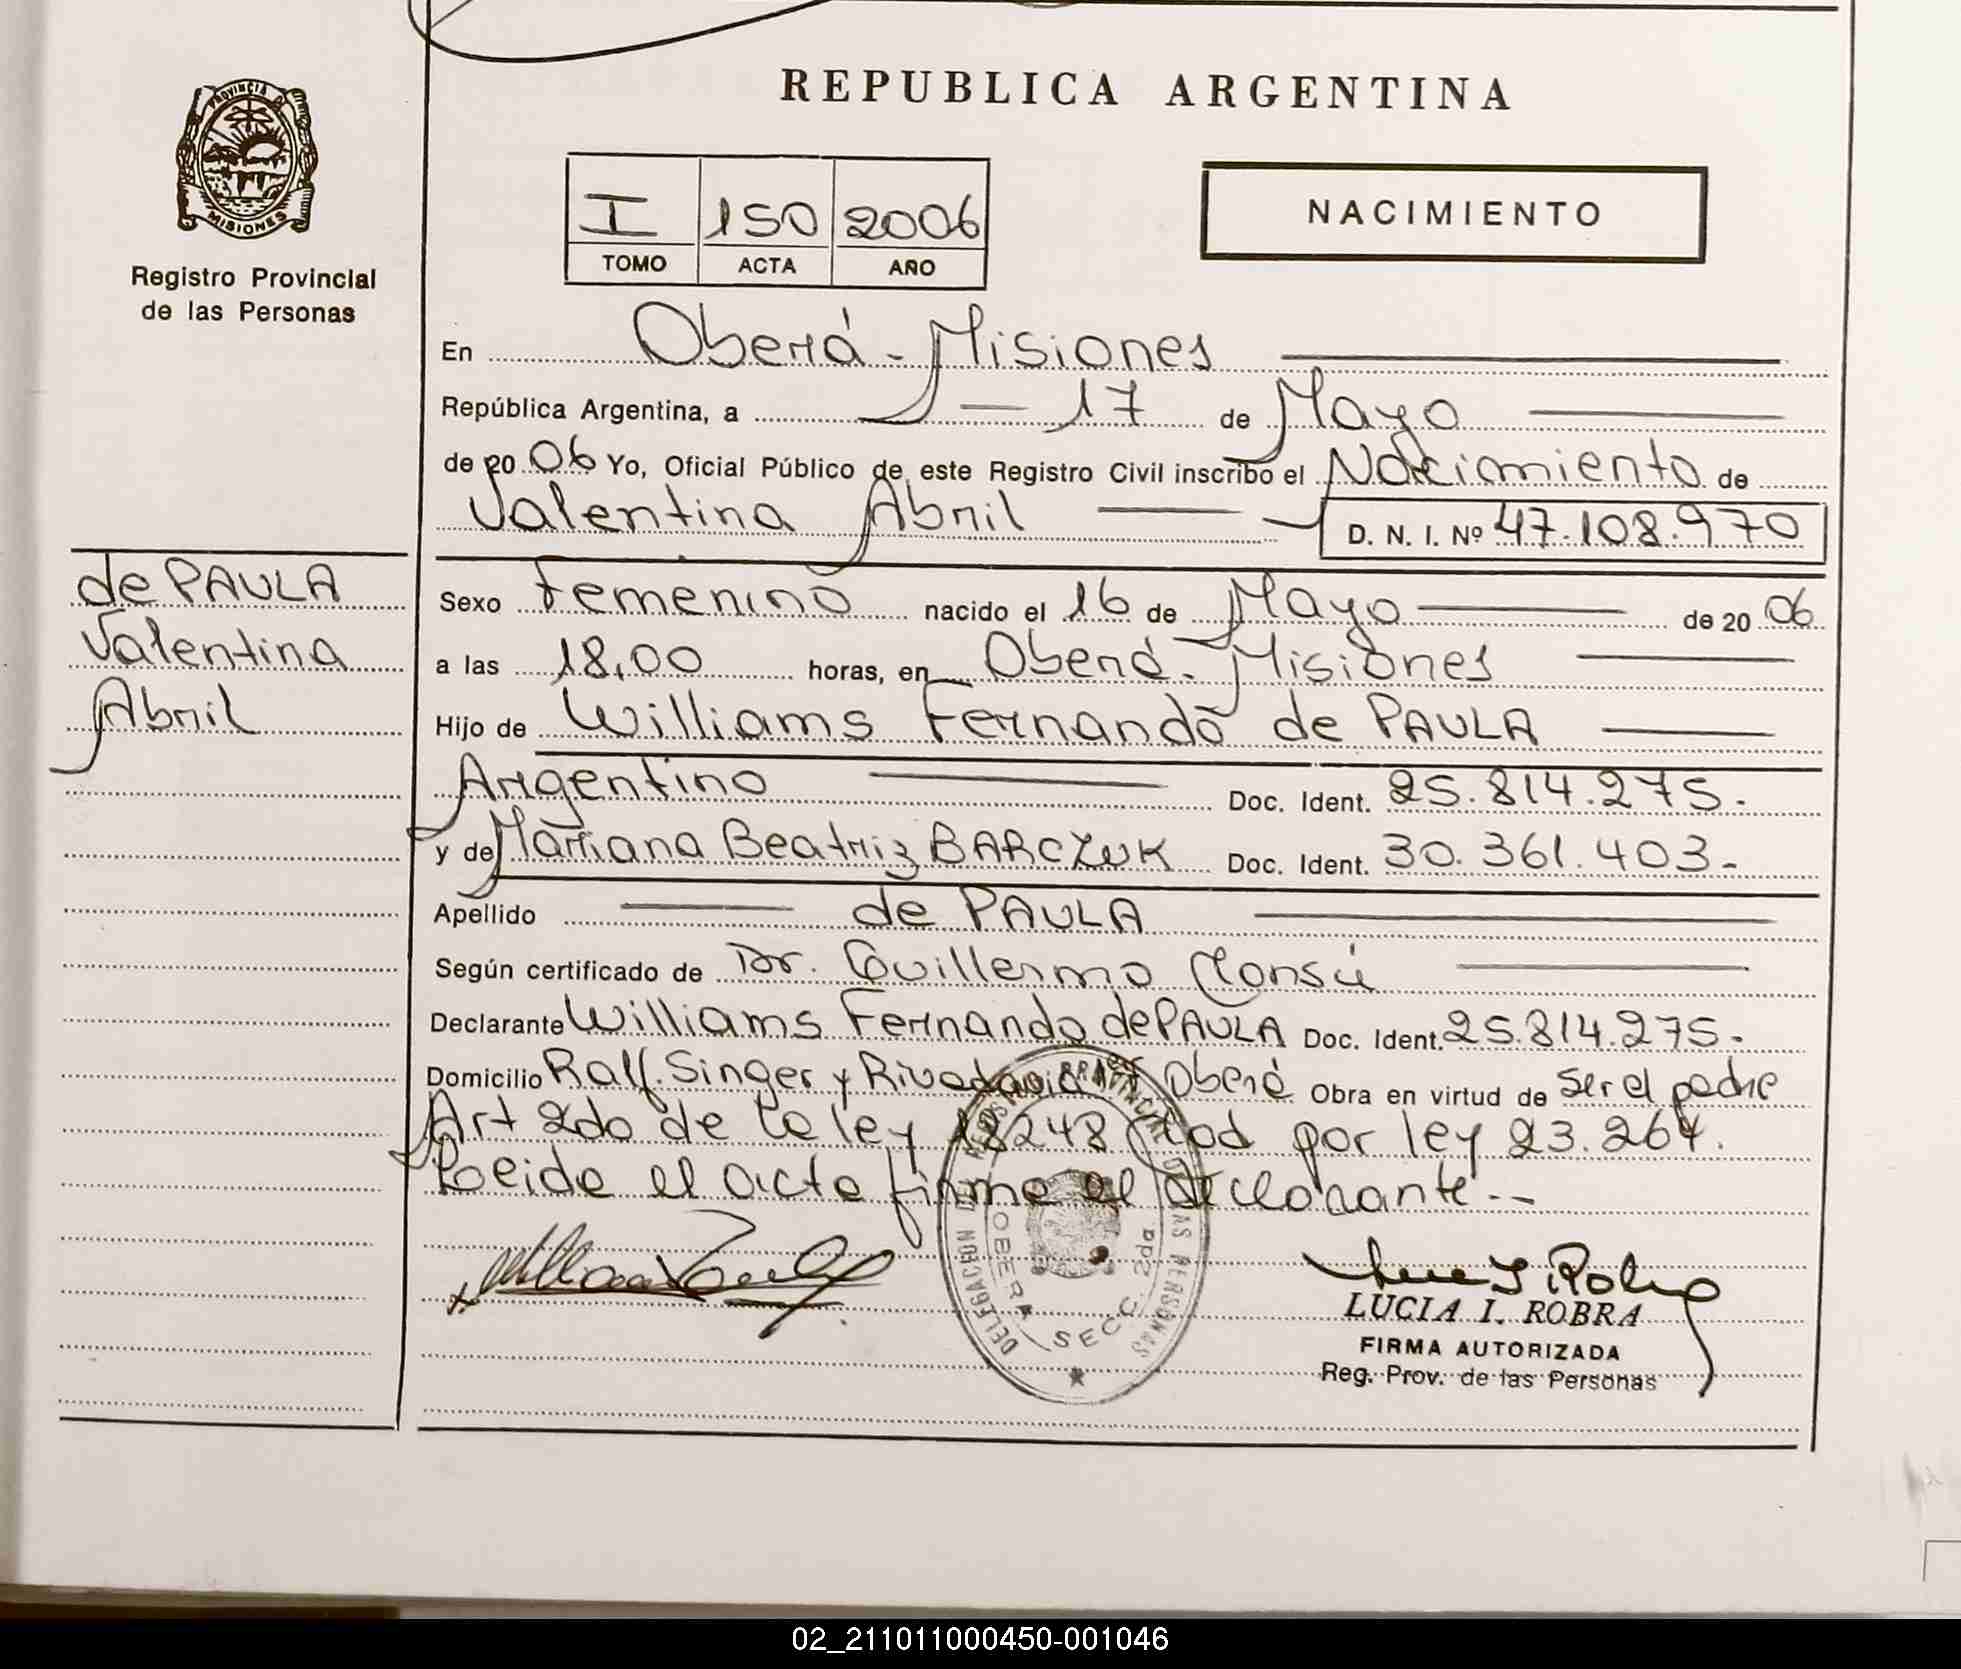 REPUBLICA ARGENTINA
PROVINCIA DE
MISIONES
Registro Provincial
de las Personas
I 150 2006
TOMO ACTA AÑO
NACIMIENTO
En Oberá - Misiones
República Argentina, a 17 de Mayo
de 20 06 Yo, Oficial Público de este Registro Civil inscribo el Nacimiento de
Valentina Abril D. N. I. Nº 47.108.970
de PAULA
Valentina
Abril
Sexo Femenino nacido el 16 de Mayo de 20 06
a las 18,00 horas, en Oberá - Misiones
Hijo de Williams Fernando de PAULA
Argentino Doc. Ident. 25.814.275.
y de Mariana Beatriz BARCZUK Doc. Ident. 30.361.403-
Apellido de PAULA
Según certificado de Dr. Guillermo
Declarante Williams Fernando de PAULA Doc. Ident. 25.814.275-
Domicilio Ralf. Singer y Rivadavia Oberá Obra en virtud de ser el padre
Art 2do de la ley 18248 Mod por ley 23.264.
Leida el acta firma el declarante--
DELEGACION REGISTRO PROVINCIAL DE LAS PERSONAS
OBERA SECC. 2da
LUCIA I. ROBRA
FIRMA AUTORIZADA
Reg. Prov. de las Personas
02_211011000450-001046